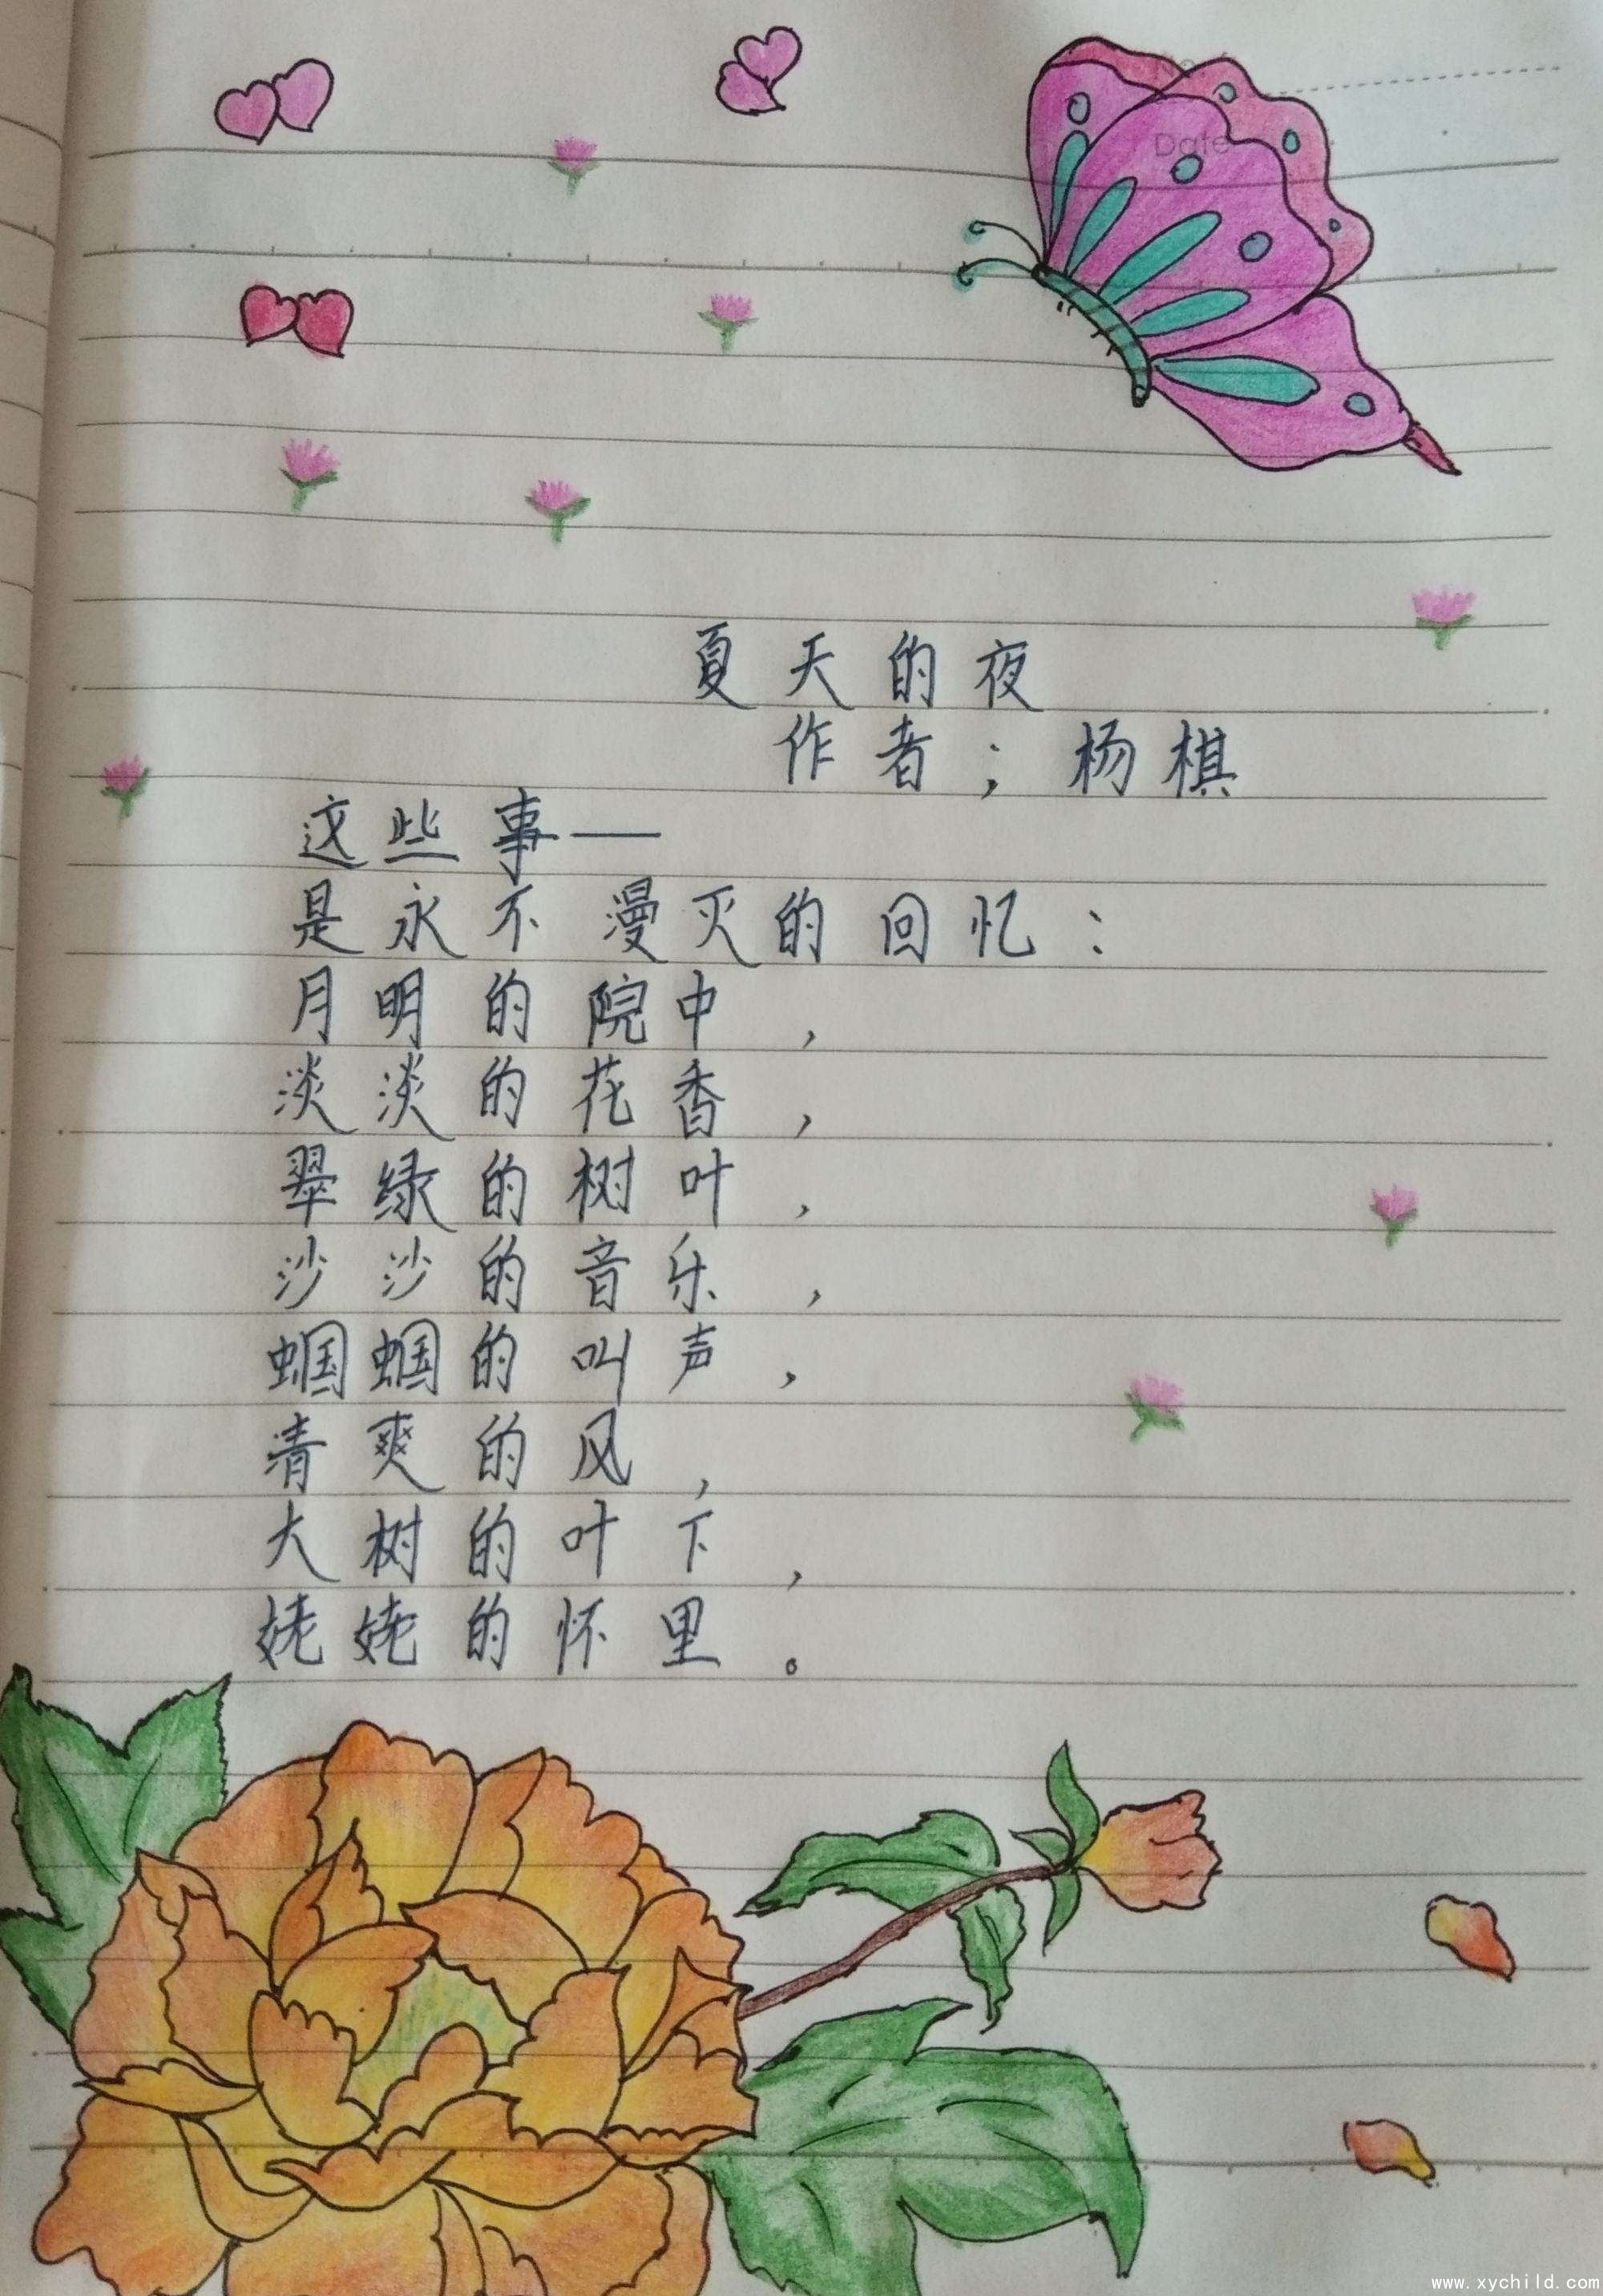 No.
Date
夏天的夜
作者；杨棋
这些事—
是永不漫灭的回忆：
月明的院中，
淡淡的花香，
翠绿的树叶，
沙沙的音乐，
蝈蝈的叫声，
清爽的风，
大树的叶下，
姥姥的怀里。
www.xychild.com